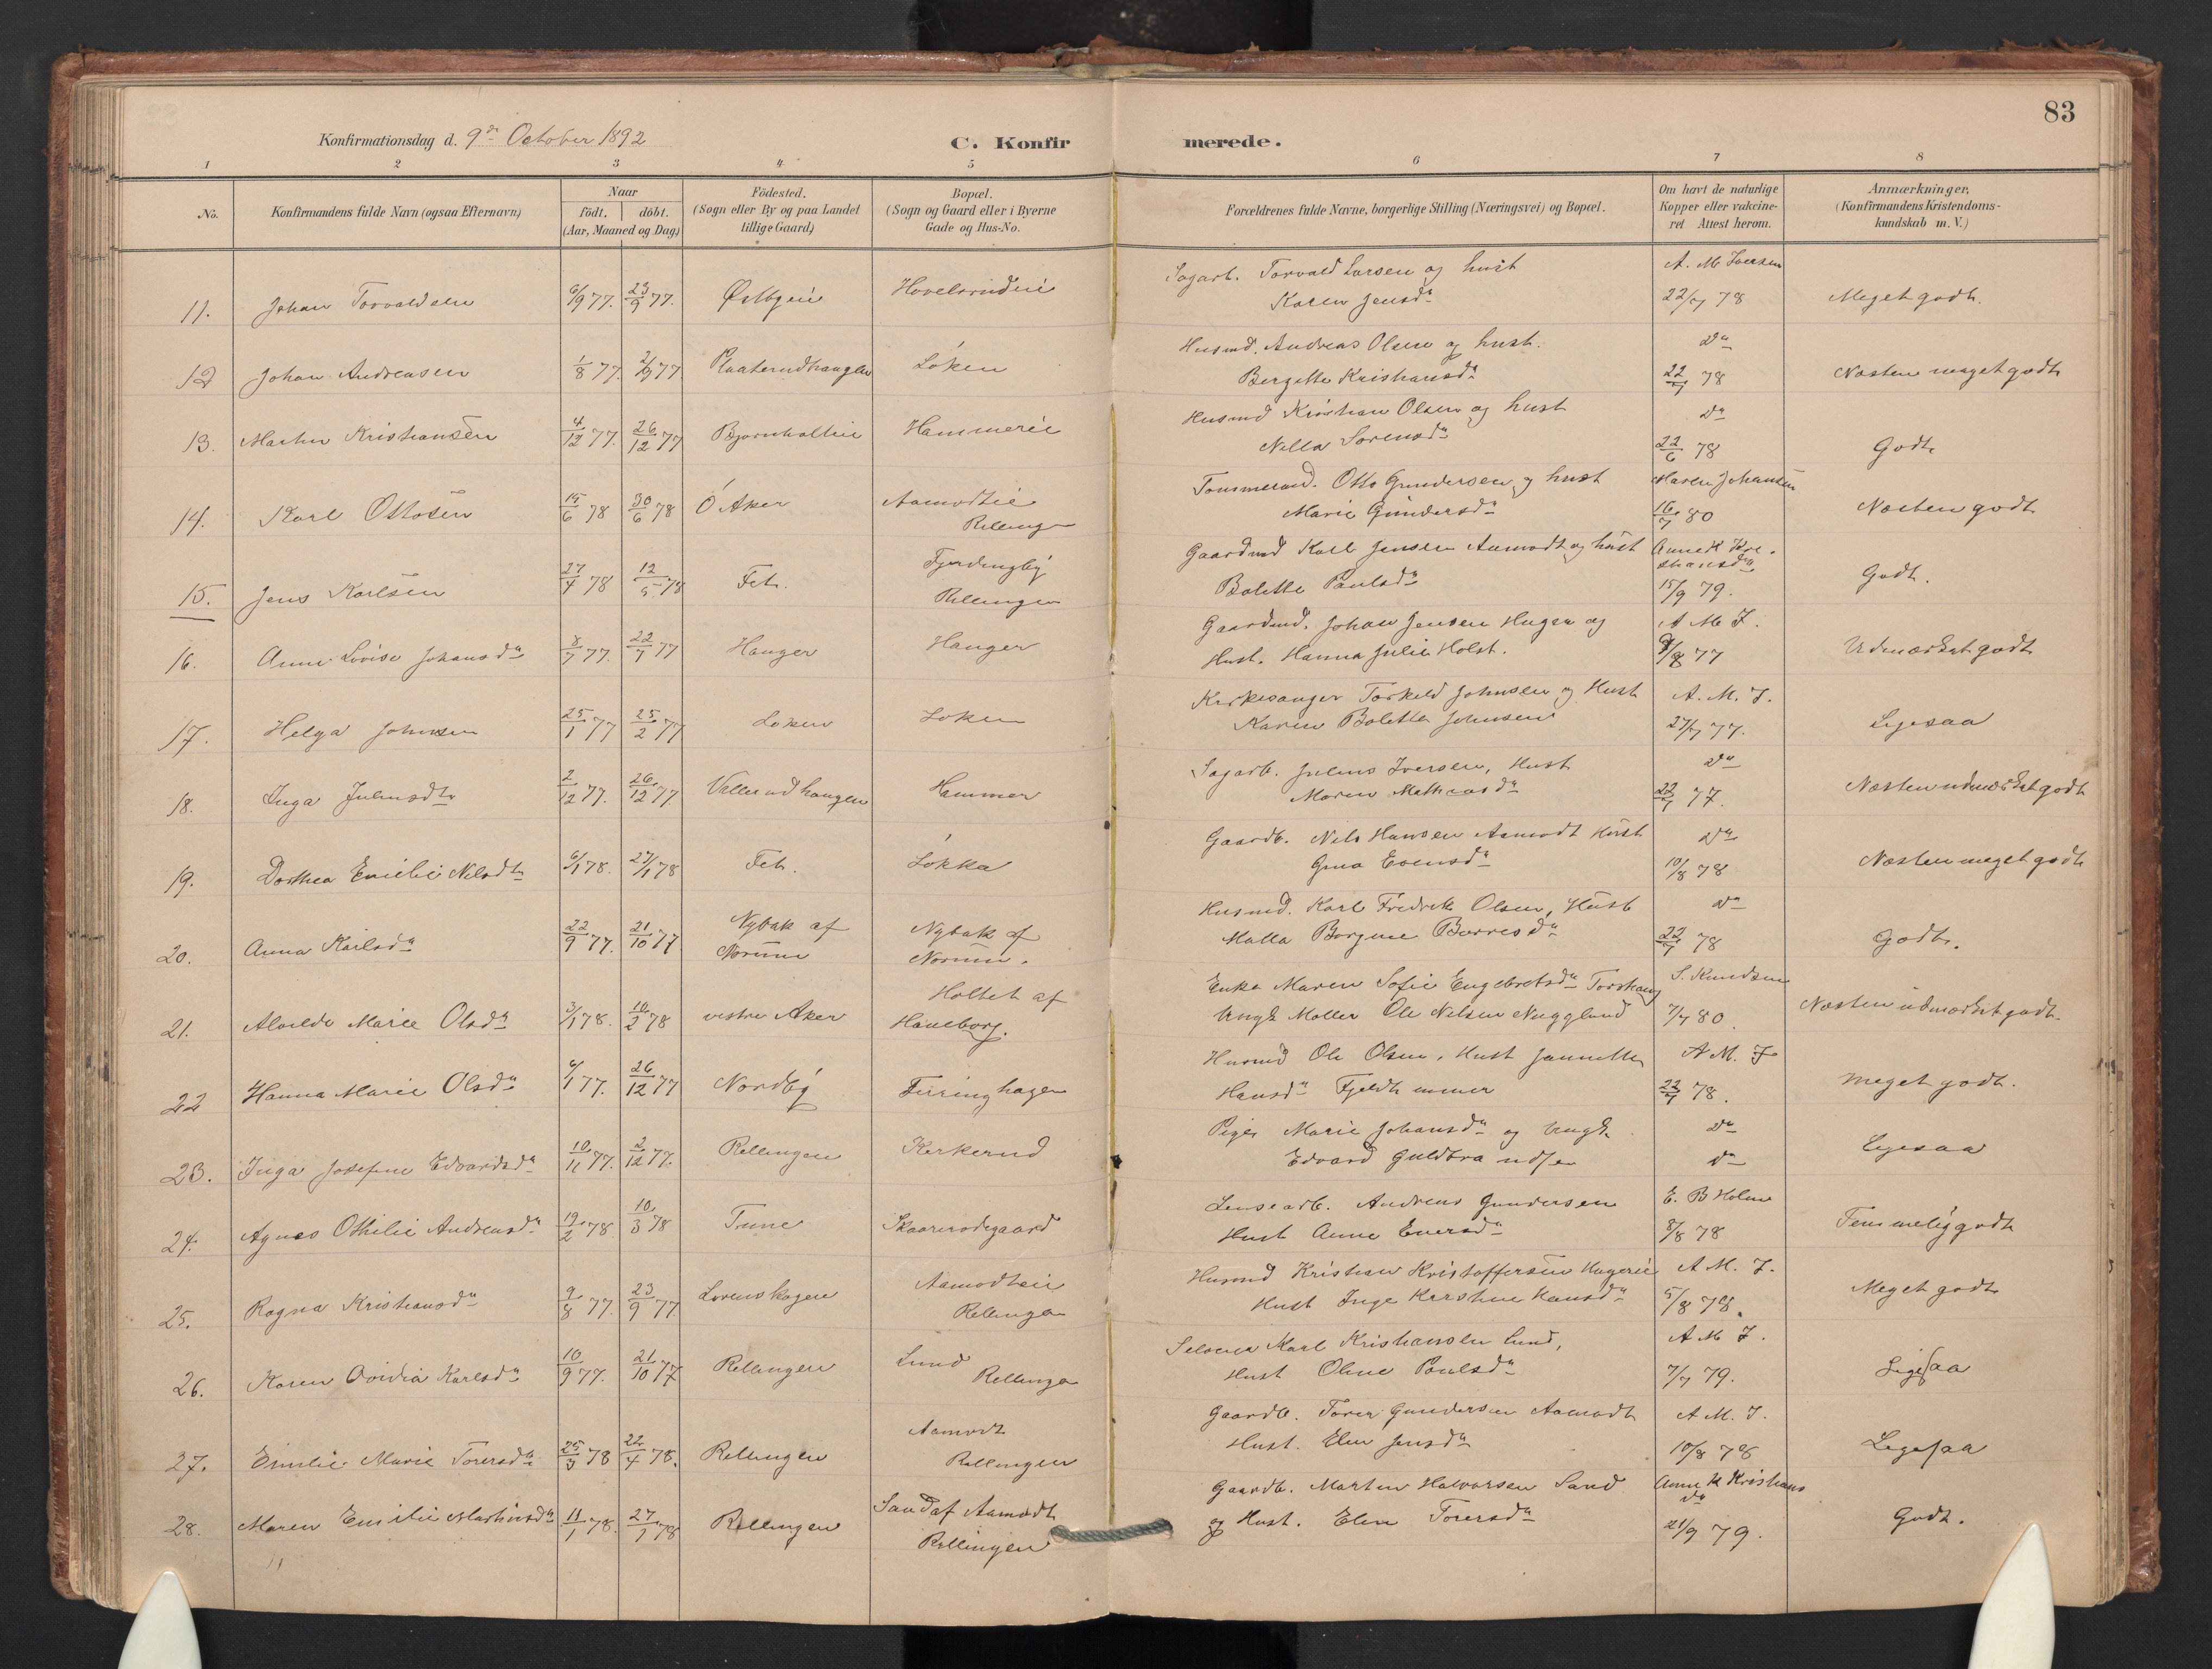 83
Konfirmationsdag d. 9de October 1892
C. Konfirmerede.
1 2 3 4 5 6 7 8
No. Konfirmandens fulde Navn (ogsaa Efternavn) Naar födt. döbt. (Aar, Maaned og Dag) Födested. (Sogn eller By og paa Landet tillige Gaard) Bopæl. (Sogn og Gaard eller i Byerne Gade og Hus-No. Forældrenes fulde Navne, borgerlige Stilling (Næringsvei) og Bopæl. Om havt de naturlige Kopper eller vakcineret Attest herom. Anmærkninger, (Konfirmandens Kristendomskundskab m. V.)
Sagarb. Torvald Larsen og hust A. M. Iversen
11. Johan Torvaldsen 6/9 77. 23/9 77. Østbyeie Hovelsrudeie Karen Jensda 22/7 78 Meget godt.
Husmd. Andreas Olsen og hust. do
12 Johan Andreasen 1/8 77. 2/9 77 Plaaterudhaugen Løken Bergitte Kristiansda 22/7 78 Næsten meget godt
Husmd Kristian Olsen og hust do
13. Martin Kristiansen 4/12 77. 26/12 77 Bjørnholteie Hammereie Nilla Sørensda 22/6 78 Godt
Tømmermd. Otto Gundersen og hust Maren Johansen
14. Karl Ottosen 15/6 78 30/6 78 Ø Aker Aamodteie Rellingen Marie Gundersda 16/7 80 Næsten godt
Gaardmd Karl Jensen Aamodt og hust Anne K Kristiansda
15. Jens Karlsen 27/4 78 12/5 78 Fet. Fjerdingby Rellingen Bolette Paulsda 15/9 79. Godt.
Gaardmd. Johan Jensen Hugen og A M I.
16. Anne Lovise Johansda 8/7 77. 22/7 77 Hanger Hanger Hust. Hanna Julie Holst. 9/8 77 Udmærket godt
Kirkesanger Torkild Johnsen og Hust A. M. I.
17. Helga Johnsen 25/1 77 25/2 77 Løken Løken Karen Bolette Johnsen 27/7 77. Ligesaa
Sagarb. Julius Iversen, Hust do
18. Inga Juliusdtr 2/12 77. 26/12 77 Vallerudhaugen Hammer Maren Mathiasda 22/7 77. Næsten udmærket godt
Gaardb. Nils Hansen Aamodt Hust do
19. Dorthea Emilie Nilsdtr 6/1 78. 27/1 78 Fet. Løkka Gina Evensda 10/8 78 Næsten meget godt
Husmd. Karl Fredrik Olsen, Hust do
20. Anna Karlsda 22/9 77. 21/10 77 Nybak af Norum Nybak af Norum. Malla Borgine Børresda 22/7 78 Godt.
Enke Maren Sofie Engebretsda Torshaug S. Knudsen
21. Alvilde Marie Olsda 3/1 78. 10/2 78 vestre Aker Holtet af Haneborg. Ungk Møller Ole Nilsen Nugglund 7/7 80. Næsten udmærket godt.
Husmd Ole Olsen, Hust Jannette A M. I
22 Hanna Marie Olsda 6/1 77. 26/12 77 Nordby Feiringhagen Hansda Fjeldhammer 22/7 78. Meget godt.
Pige Marie Johansda og Ungk. do
23. Inga Josefine Edvardsda 10/11 77. 2/12 77. Rellingen Kirkerud Edvard Guldbrandsen do Ligesaa
Lensearb. Andreas Gundersen E. B Holm
24. Agnes Othilie Andreasda 19/2 78. 10/3 78 Tune Skaarersødegaard Hust Anne Eversda 8/8 78 Temmelig godt
Husmd Kristian Kristoffersen Hugerie A M. I.
25. Ragna Kristiansda 9/8 77. 23/9 77. Lørenskogen Aamodteie Rellingen Hust Inge Kirstine Hansda 5/8 78. Meget godt
Selveier Karl Kristiansen Lund, A M I.
26. Karen Ovidia Karlsda 10/9 77. 21/10 77 Rellingen Lund Rellingen Hust Oline Paulsda 7/7 79. Ligesaa
Gaardb. Torer Gundersen Aamodt A M. I.
27. Emilie Marie Torersda 25/3 78 22/4 78. Rellingen Aamodt Rellingen Hust. Elen Jensda 10/8 78 Ligesaa
Gaardb. Martin Halvorsen Sand Anne K Kristiansda
28. Maren Emilie Martinsda 11/1 78. 27/1 78 Rellingen Sand af Aamodt Rellingen og Hust. Elen Torersda 21/9 79. Godt.